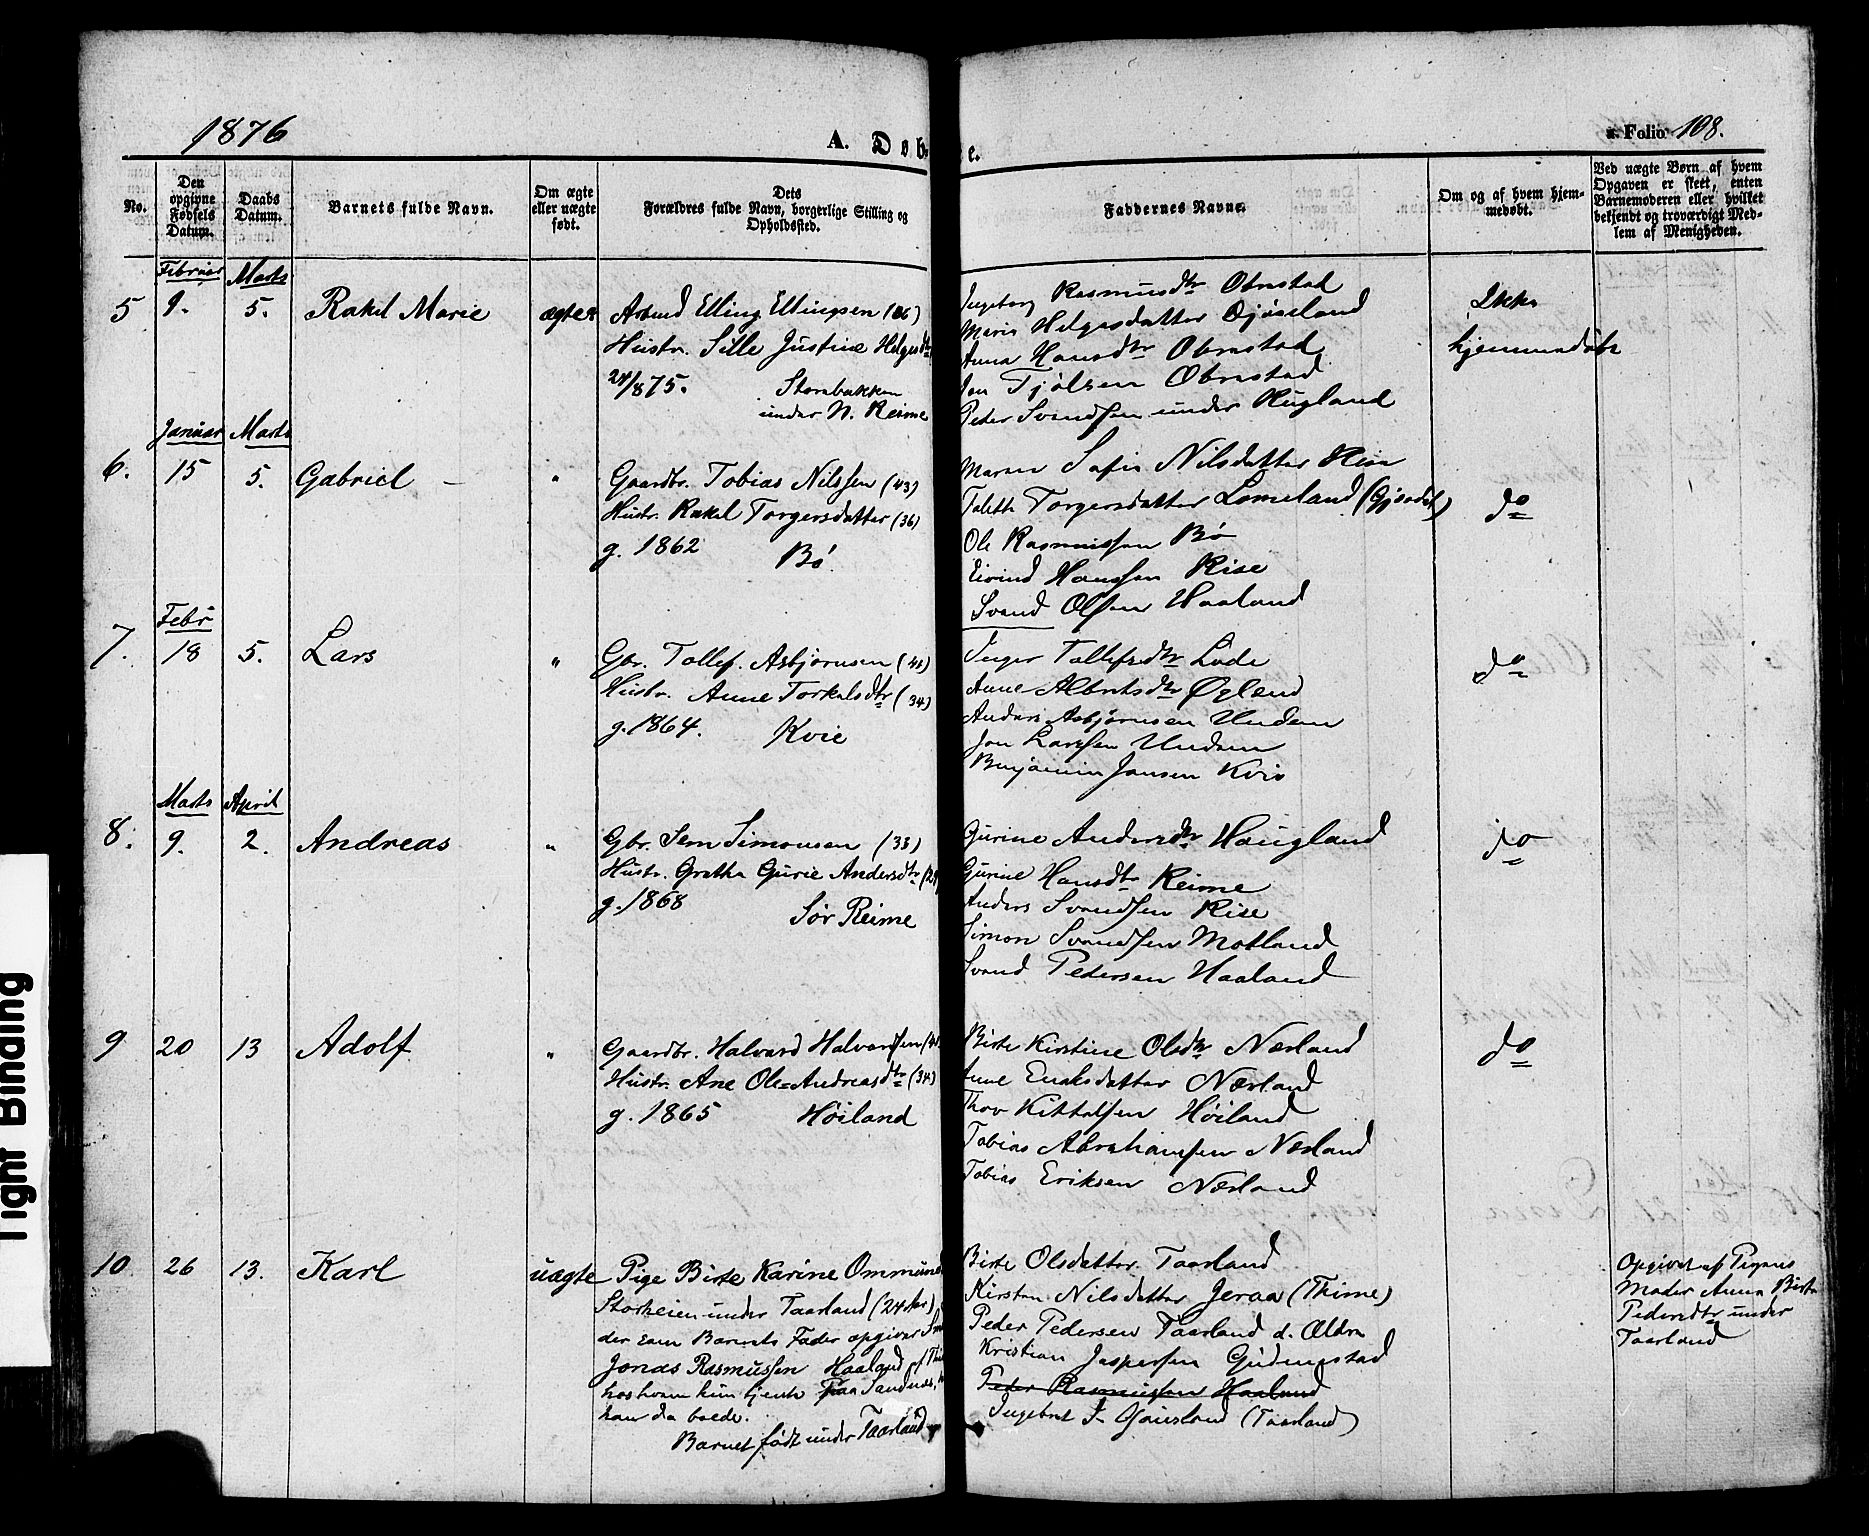 1876
A. Døbte.
a. Folio 108.
No.
Den opgivne Fødsels Datum.
Daabs Datum.
Barnets fulde Navn.
Om ægte eller uægte født.
Dets Forældres fulde Navn, borgerlige Stilling og Opholdssted.
Faddernes Navne.
Om og af hvem hjemmedøbt.
Ved uægte Børn af hvem Opgaven er skeet, enten Barnemoderen eller hvilket bekjendt og troværdigt Medlem af Menigheden.
Februar Marts
5 9. 5. Rakel Marie ægte
Elling Ellingsen (26)
Hustr. Sille Justine Helgesdtr
24/875. Storebakken
under N. Reime
Ingeborg Rasmusdtr Obrestad
Marie Helgesdatter
Anna Hansdtr Obrestad
Jon Tjølsen Obrestad
Peder Svendsen under Hugland
Ikke
hjemmedøbt
Januar Marts
6. 15 5. Gabriel "
Gaardbr. Tobias Nilssen (43)
Hustr. Rakel Torgersdatter (36)
g. 1862 Bø
Maren Sofie Nilsdatter
Torgersdatter Lomeland (Gjesdal)
Ole Rasmussen Bø
Eivind Hanssen Rise
Svend Olsen Haaland
do
Febr
7. 18 5. Lars "
Gbr. Tollef Asbjørnsen
Hustr. Anne Torkelsdtr (34)
g. 1864. Kvie
Inger Tollefsdtr Lode
Anne Albretsdtr Øgland
Anders Asbjørnsen Undem
Jon Larssen Undem
Benjamin Jansen Kvie
do
Marts April
8. 9. 2. Andreas "
Gbr. Sem Simonsen (33)
Hustr. Grethe Gurie Andersdtr
g. 1868
Sør Reime
Gurine Andersdtr Haugland
Gurine Hansdtr Reime
Anders Svendsen Rise
Simon Svendsen Motland
Svend Pedersen Haaland
do
9 20 13 Adolf "
Gaardbr. Halvard Halvardsen
Hustr. Ane Ole-Andreasdtr (34)
g. 1865 Høiland
Birte Kirstine Olsdtr Nærland
Anne Eriksdatter Nærland
Thov Kittelsen Høiland
Tobias Abrahamsen Nærland
Tobias Eriksen Nærland
do
10 26 13. Karl uægte
Pige Birte Karine Ommunds
Storheien under Taarland (24 Aar)
der som Barnets Fader opgiver
Jonas Rasmussen Haaland
hos hvem hun tjente paa Sandnæs,
han da boede.
Barnet født under Taarland
Birte Olsdatter Taarland
Kirsten Nilsdatter Jeraa (Thime)
Peder Pedersen Taarland d. Ældre
Kristian Jaspersen Gudmestad
Peder Rasmussen Haaland
Ingebret (Taarland)
Opgivet af Pigens
Moder Anna Birte
Pedersdtr under
Taarland
Tight Binding